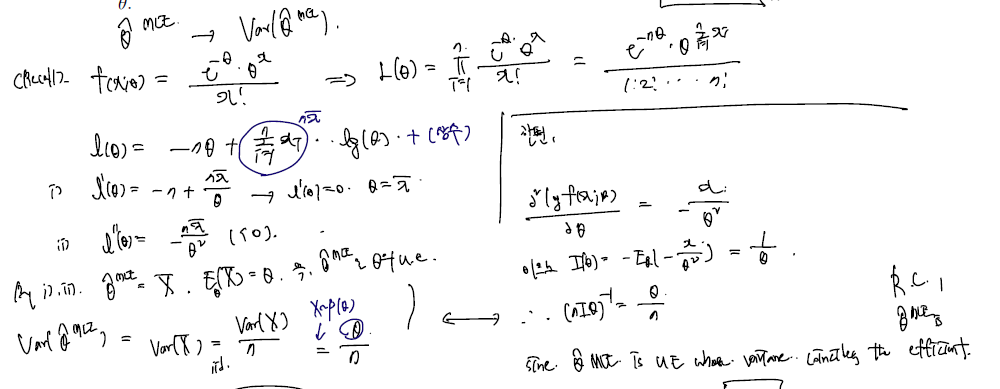 θ.
θ̂ MLE. → Var(θ̂ MLE).
(Recall)- f(x;θ) = e^{-θ}·θ^x / x! ⇒ L(θ) = ∏_{i=1}^{n} e^{-θ}·θ^x / x! = e^{-nθ}·θ^{Σ_{i=1}^{n} xi} / 1!2!·····n!
l(θ) = -nθ + Σ_{i=1}^{n} xi ·· lg(θ) · + (상수)
nx̄
i) l'(θ) = -n + nx̄/θ → l'(θ)=0. θ=x̄.
ii) l''(θ) = -nx̄/θ² (≤0).
By i), ii). θ̂ MLE = X̄. E_θ(X̄)=θ. 즉, θ̂ MLE θ u.e.
Var(θ̂ MLE) = Var(X̄) = Var(X)/n = θ/n
iid.
X~P(θ)
한편,
∂²lg f(x;θ) / ∂θ = -x/θ²
I(θ) = -E_θ(-x/θ²) = 1/θ.
∴ (nIθ)^{-1} = θ/n
R.C.
θ̂ MLE
since θ̂ MLE is UE whose variance coincides the efficient.